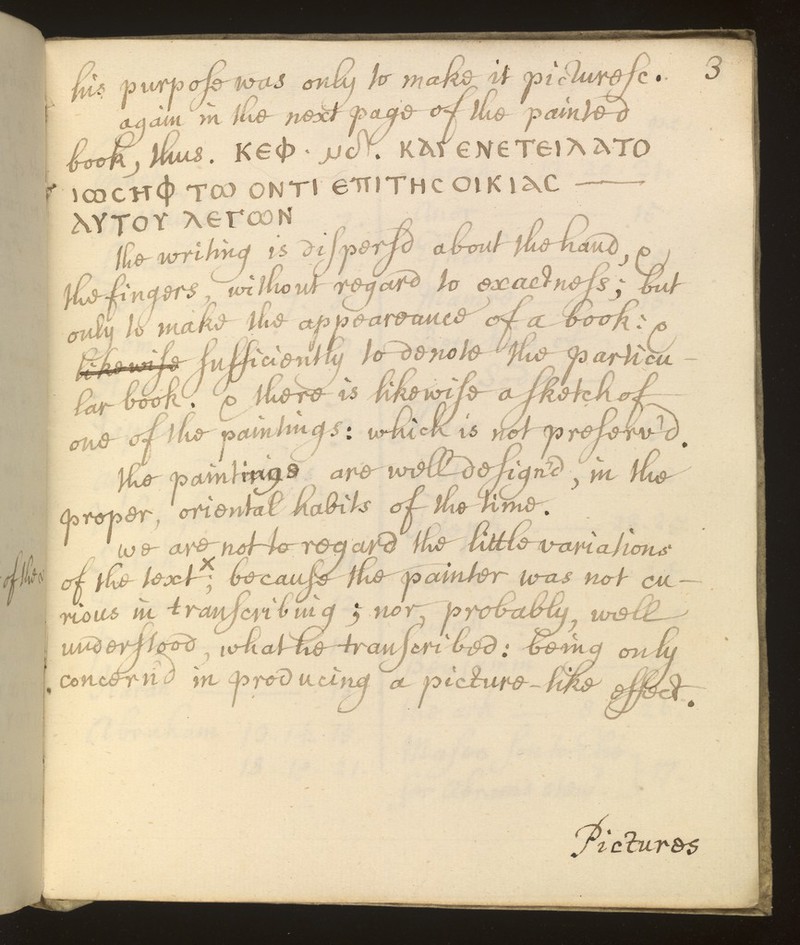 3
his purpose was only to make it picturesc.
again in the next page of the painted
book, thus. ΚΕΦ · μδ. ΚΑΙ ΕΝΕΤΕΙΛΑΤΟ
ΙѠСΗΦ ΤѠ ΟΝΤΙ ΕΠΙΤΗС ΟΙΚΙΑС —
ΑΥΤΟΥ ΛΕΓѠΝ
the writing is dispersd about the hand, &
the fingers, without regard to exactness; but
only to make the appeareance of a book: &
likewise sufficiently to denote the particu-
lar book. & there is likewise a sketch of
one of the paintings: which is not preserv'd.
the paintings are well design'd, in the
proper, oriental habits of the time.
we are not to regard the little variations
of the text x; because the painter was not cu-
rious in transcribing; nor, probably, well
understood, what he transcribed: being only
concern'd in producing a picture-like effect.
Pictures
of the